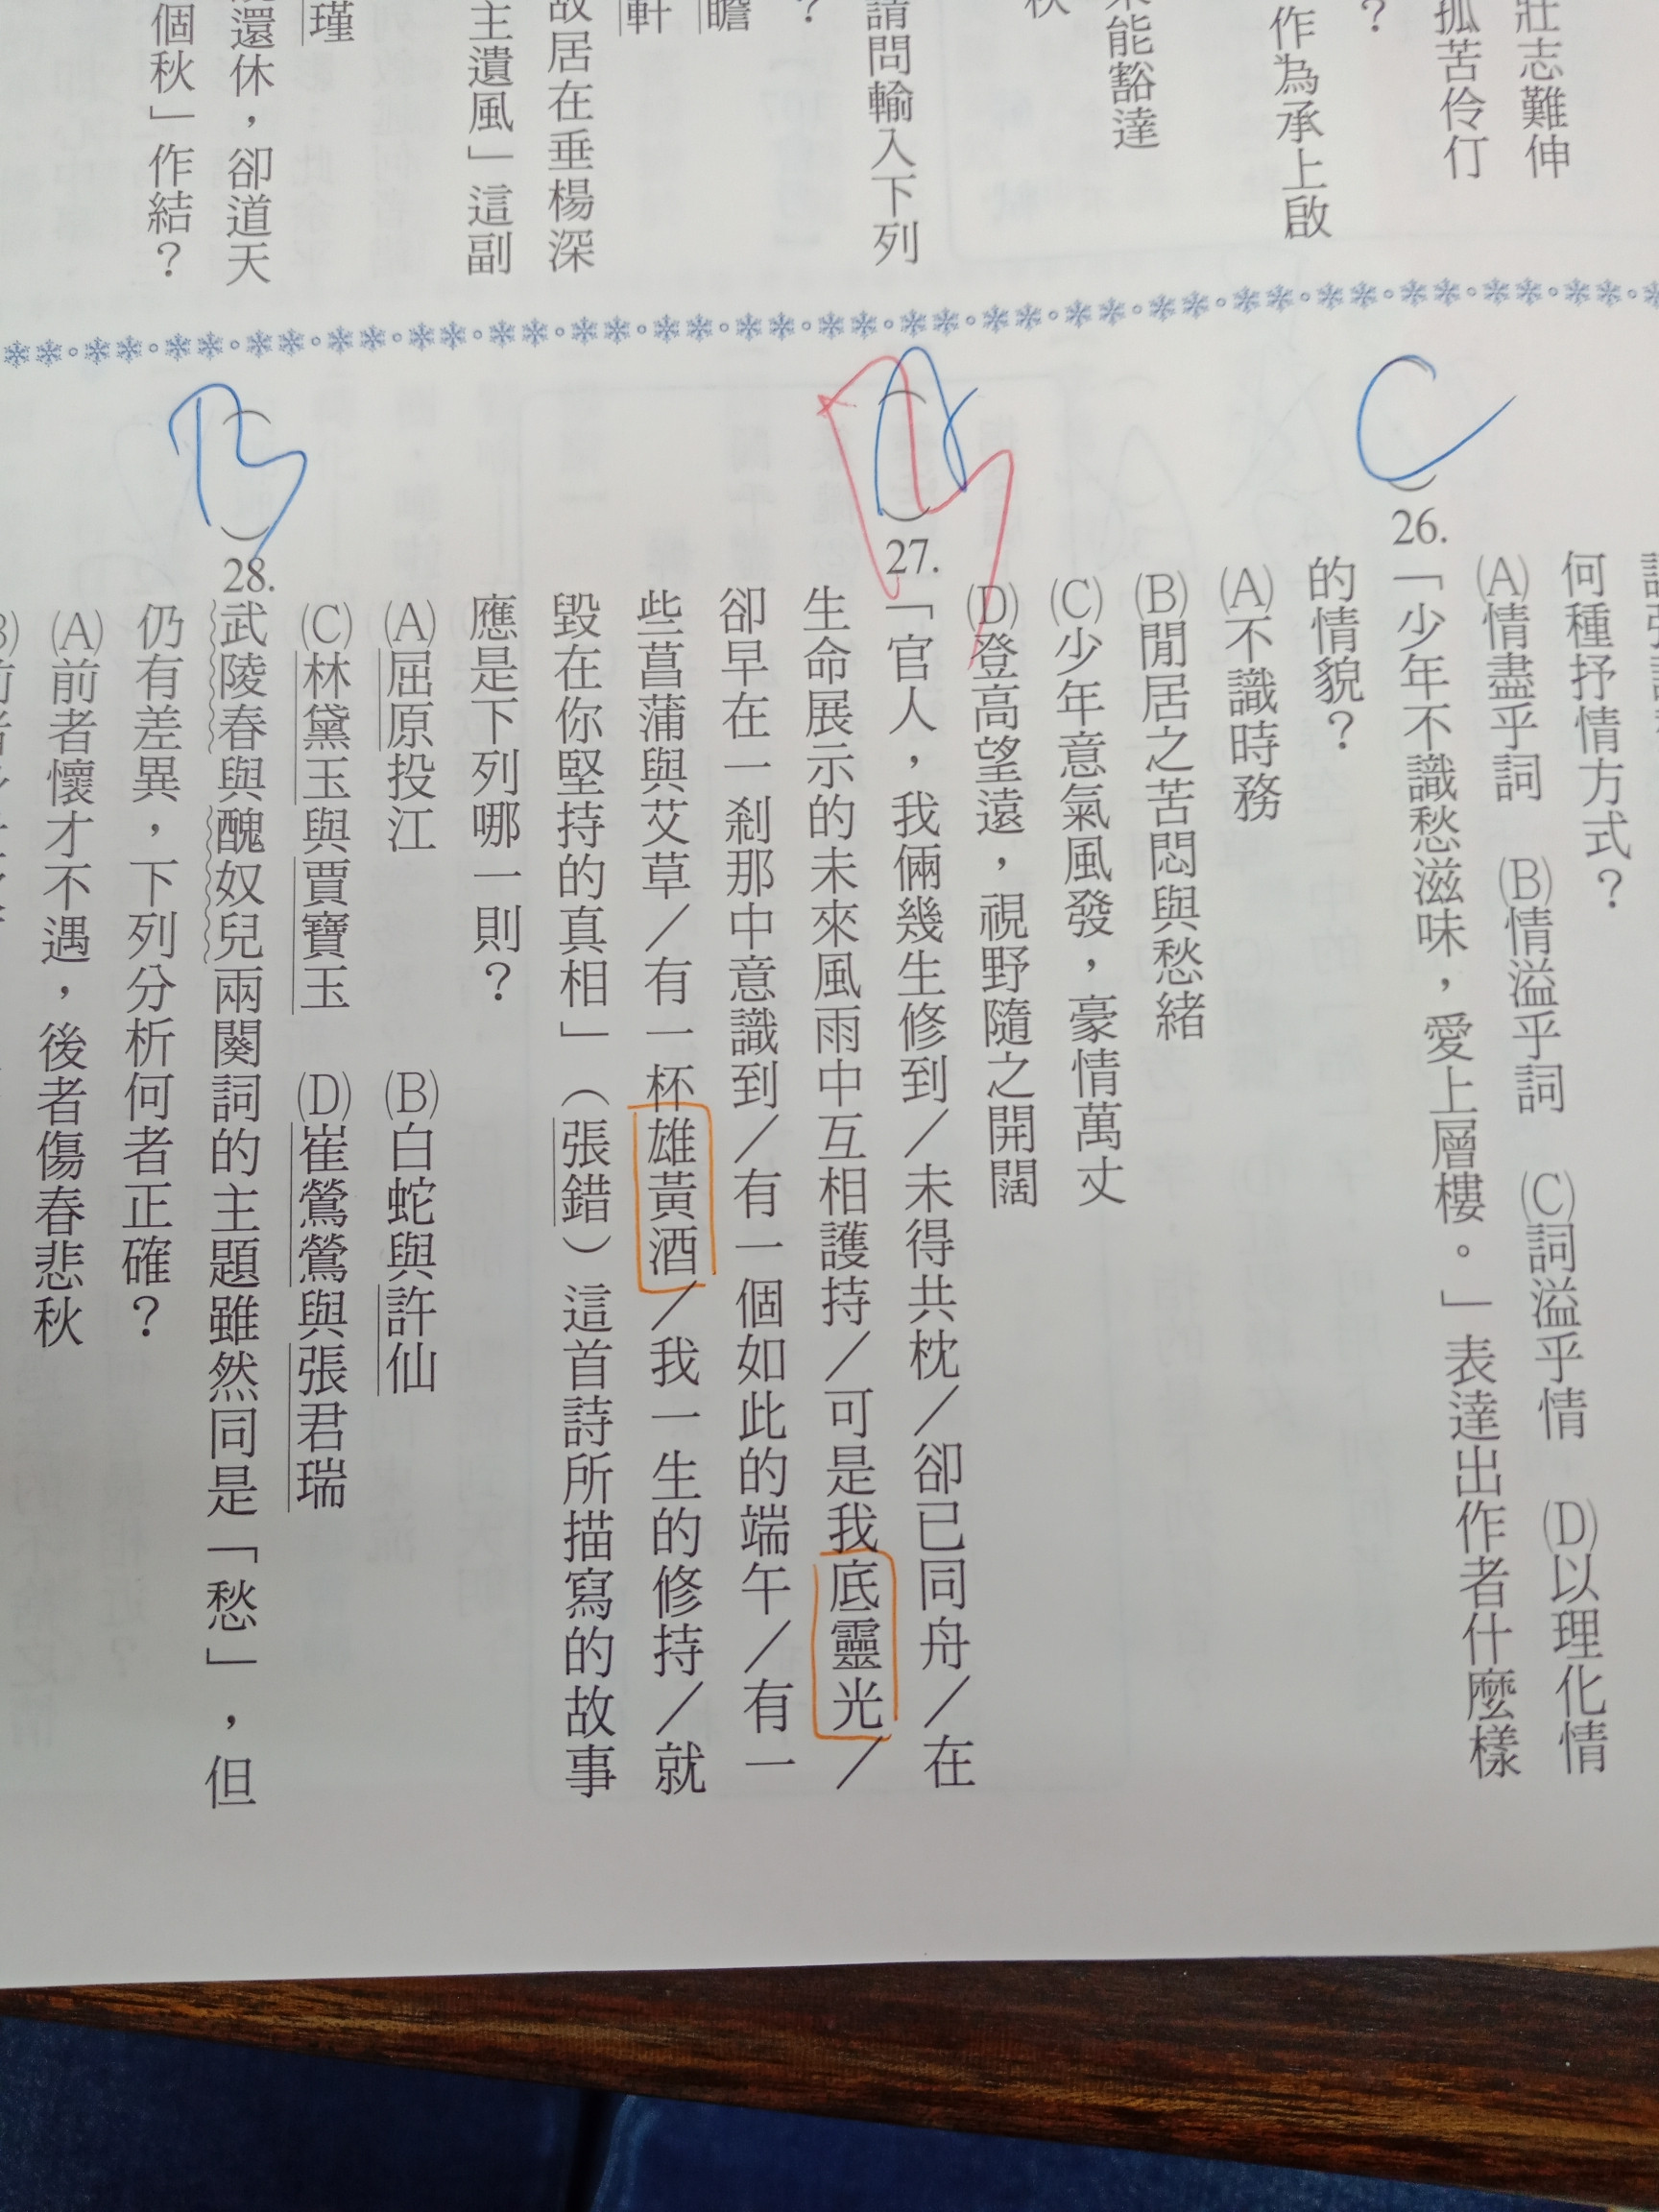 壯志難伸
孤苦伶仃
？
作為承上啟
未能豁達
秋
請問輸入下列
？
瞻
軒
故居在垂楊深
主遺風」這副
瑾
還休，卻道天
個秋」作結？
何種抒情方式？
(A)情盡乎詞 (B)情溢乎詞 (C)詞溢乎情 (D)以理化情
C
( )26.「少年不識愁滋味，愛上層樓。」表達出作者什麼樣
的情貌？
(A)不識時務
(B)閒居之苦悶與愁緒
(C)少年意氣風發，豪情萬丈
(D)登高望遠，視野隨之開闊
A
B
( )27.「官人，我倆幾生修到／未得共枕／卻已同舟／在
生命展示的未來風雨中互相護持／可是我底靈光／
卻早在一剎那中意識到／有一個如此的端午／有一
些菖蒲與艾草／有一杯雄黃酒／我一生的修持／就
毀在你堅持的真相」（張錯）這首詩所描寫的故事
應是下列哪一則？
(A)屈原投江 (B)白蛇與許仙
(C)林黛玉與賈寶玉 (D)崔鶯鶯與張君瑞
B
( )28.武陵春與醜奴兒兩闋詞的主題雖然同是「愁」，但
仍有差異，下列分析何者正確？
(A)前者懷才不遇，後者傷春悲秋